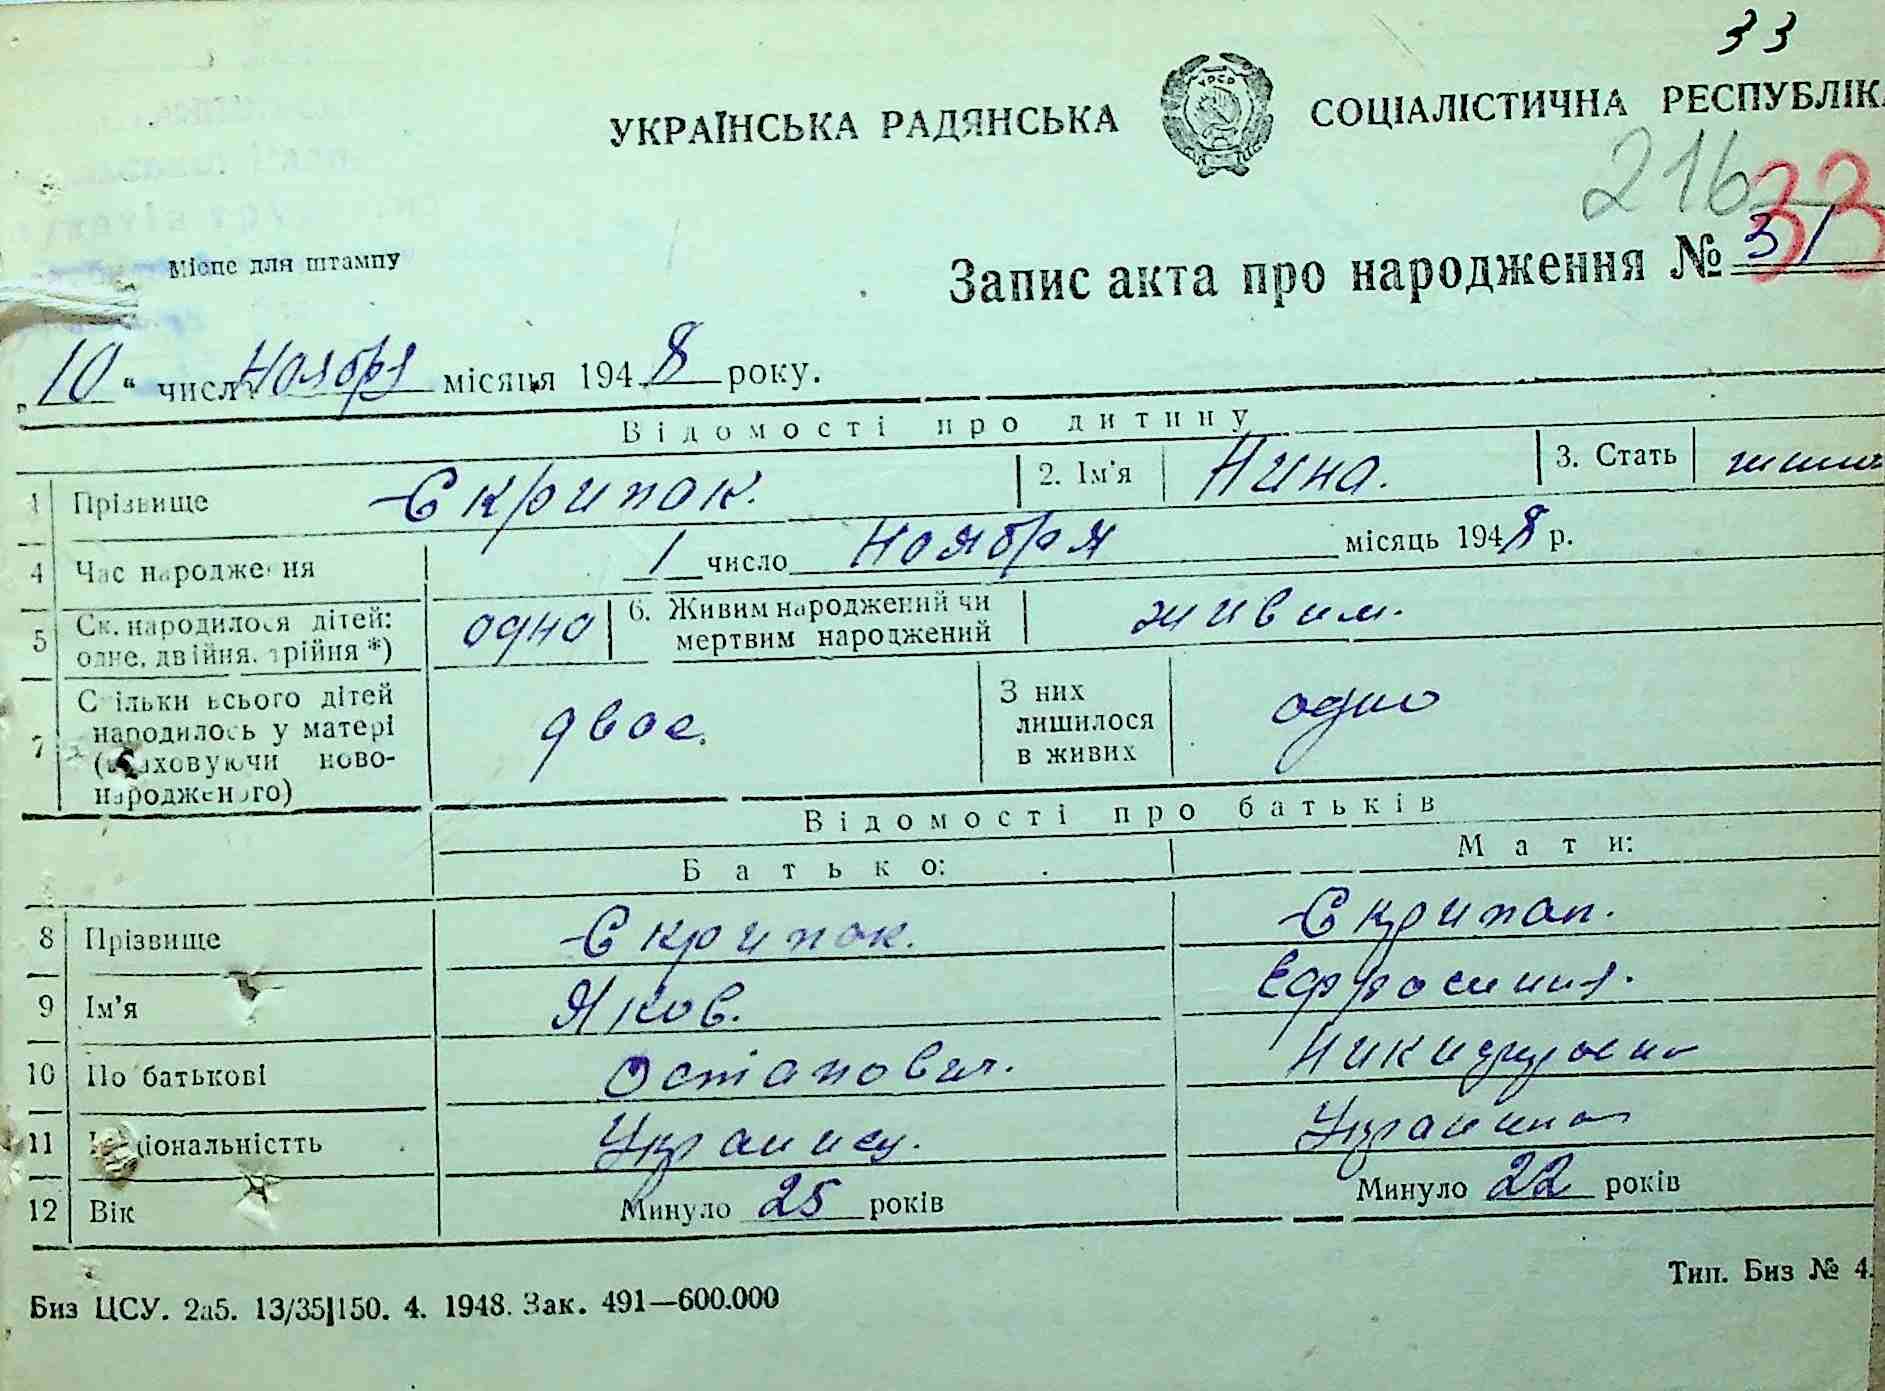 33
УКРАЇНСЬКА РАДЯНСЬКА СОЦІАЛІСТИЧНА РЕСПУБЛІК
216 33
Місце для штампу
Запис акта про народження № 31
„10“ числ Ноября місяця 1948 року.
Відомості про дитину
1 Прізвище Скрипок. 2. Ім'я Нина. 3. Стать
4 Час народження 1 число Ноября місяць 1948 р.
5 Ск. народилося дітей: одне, двійня, трійня *) одно 6. Живим народжений чи мертвим народжений живим.
7 Скільки всього дітей народилось у матері (враховуючи ново-народженого) двое. З них лишилося в живих одно
Відомості про батьків
Батько: Мати:
8 Прізвище Скрипок. Скрипок.
9 Ім'я Яков. Ефросиния.
10 По батькові Остапович.
11 Національністть Украинец. Украинка
12 Вік Минуло 25 років Минуло 22 років
Биз ЦСУ. 2а5. 13/35|150. 4. 1948. Зак. 491—600.000
Тип. Биз № 4.